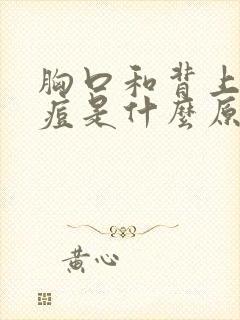 胸口和背上
痘是什麼原
黄心